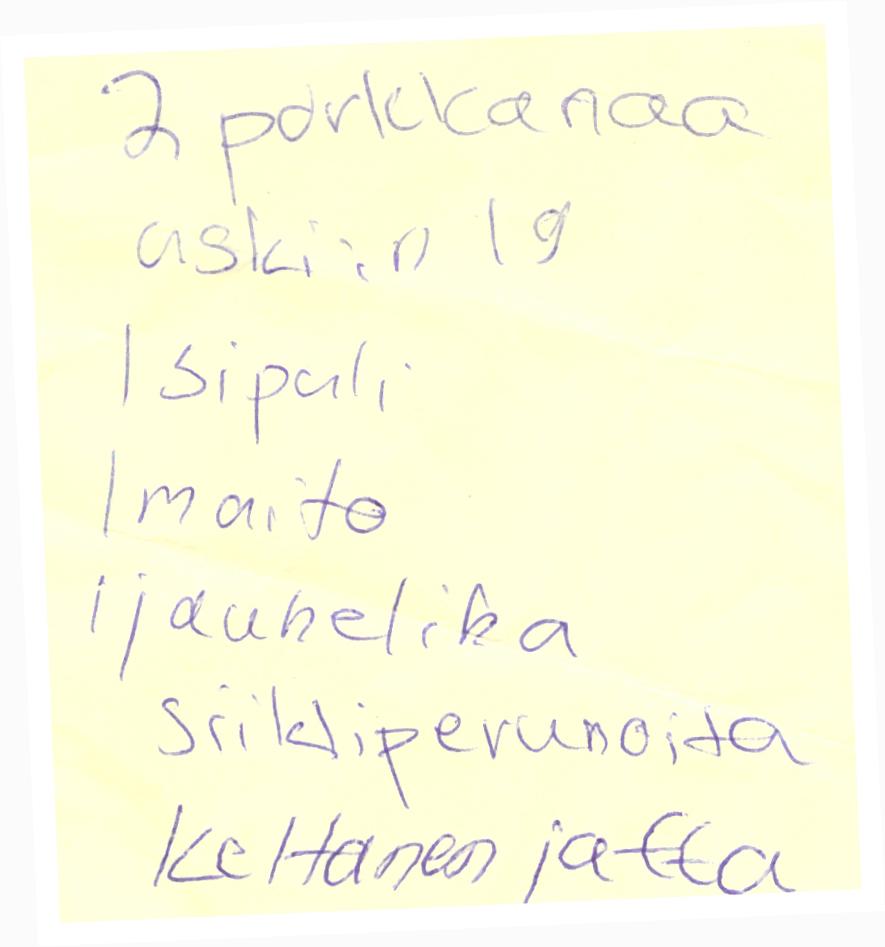 2 porkkanaa
askiin 19
1 sipuli
1 maito
1 jauhelika
Siikliperunoita
keltanen jaffa